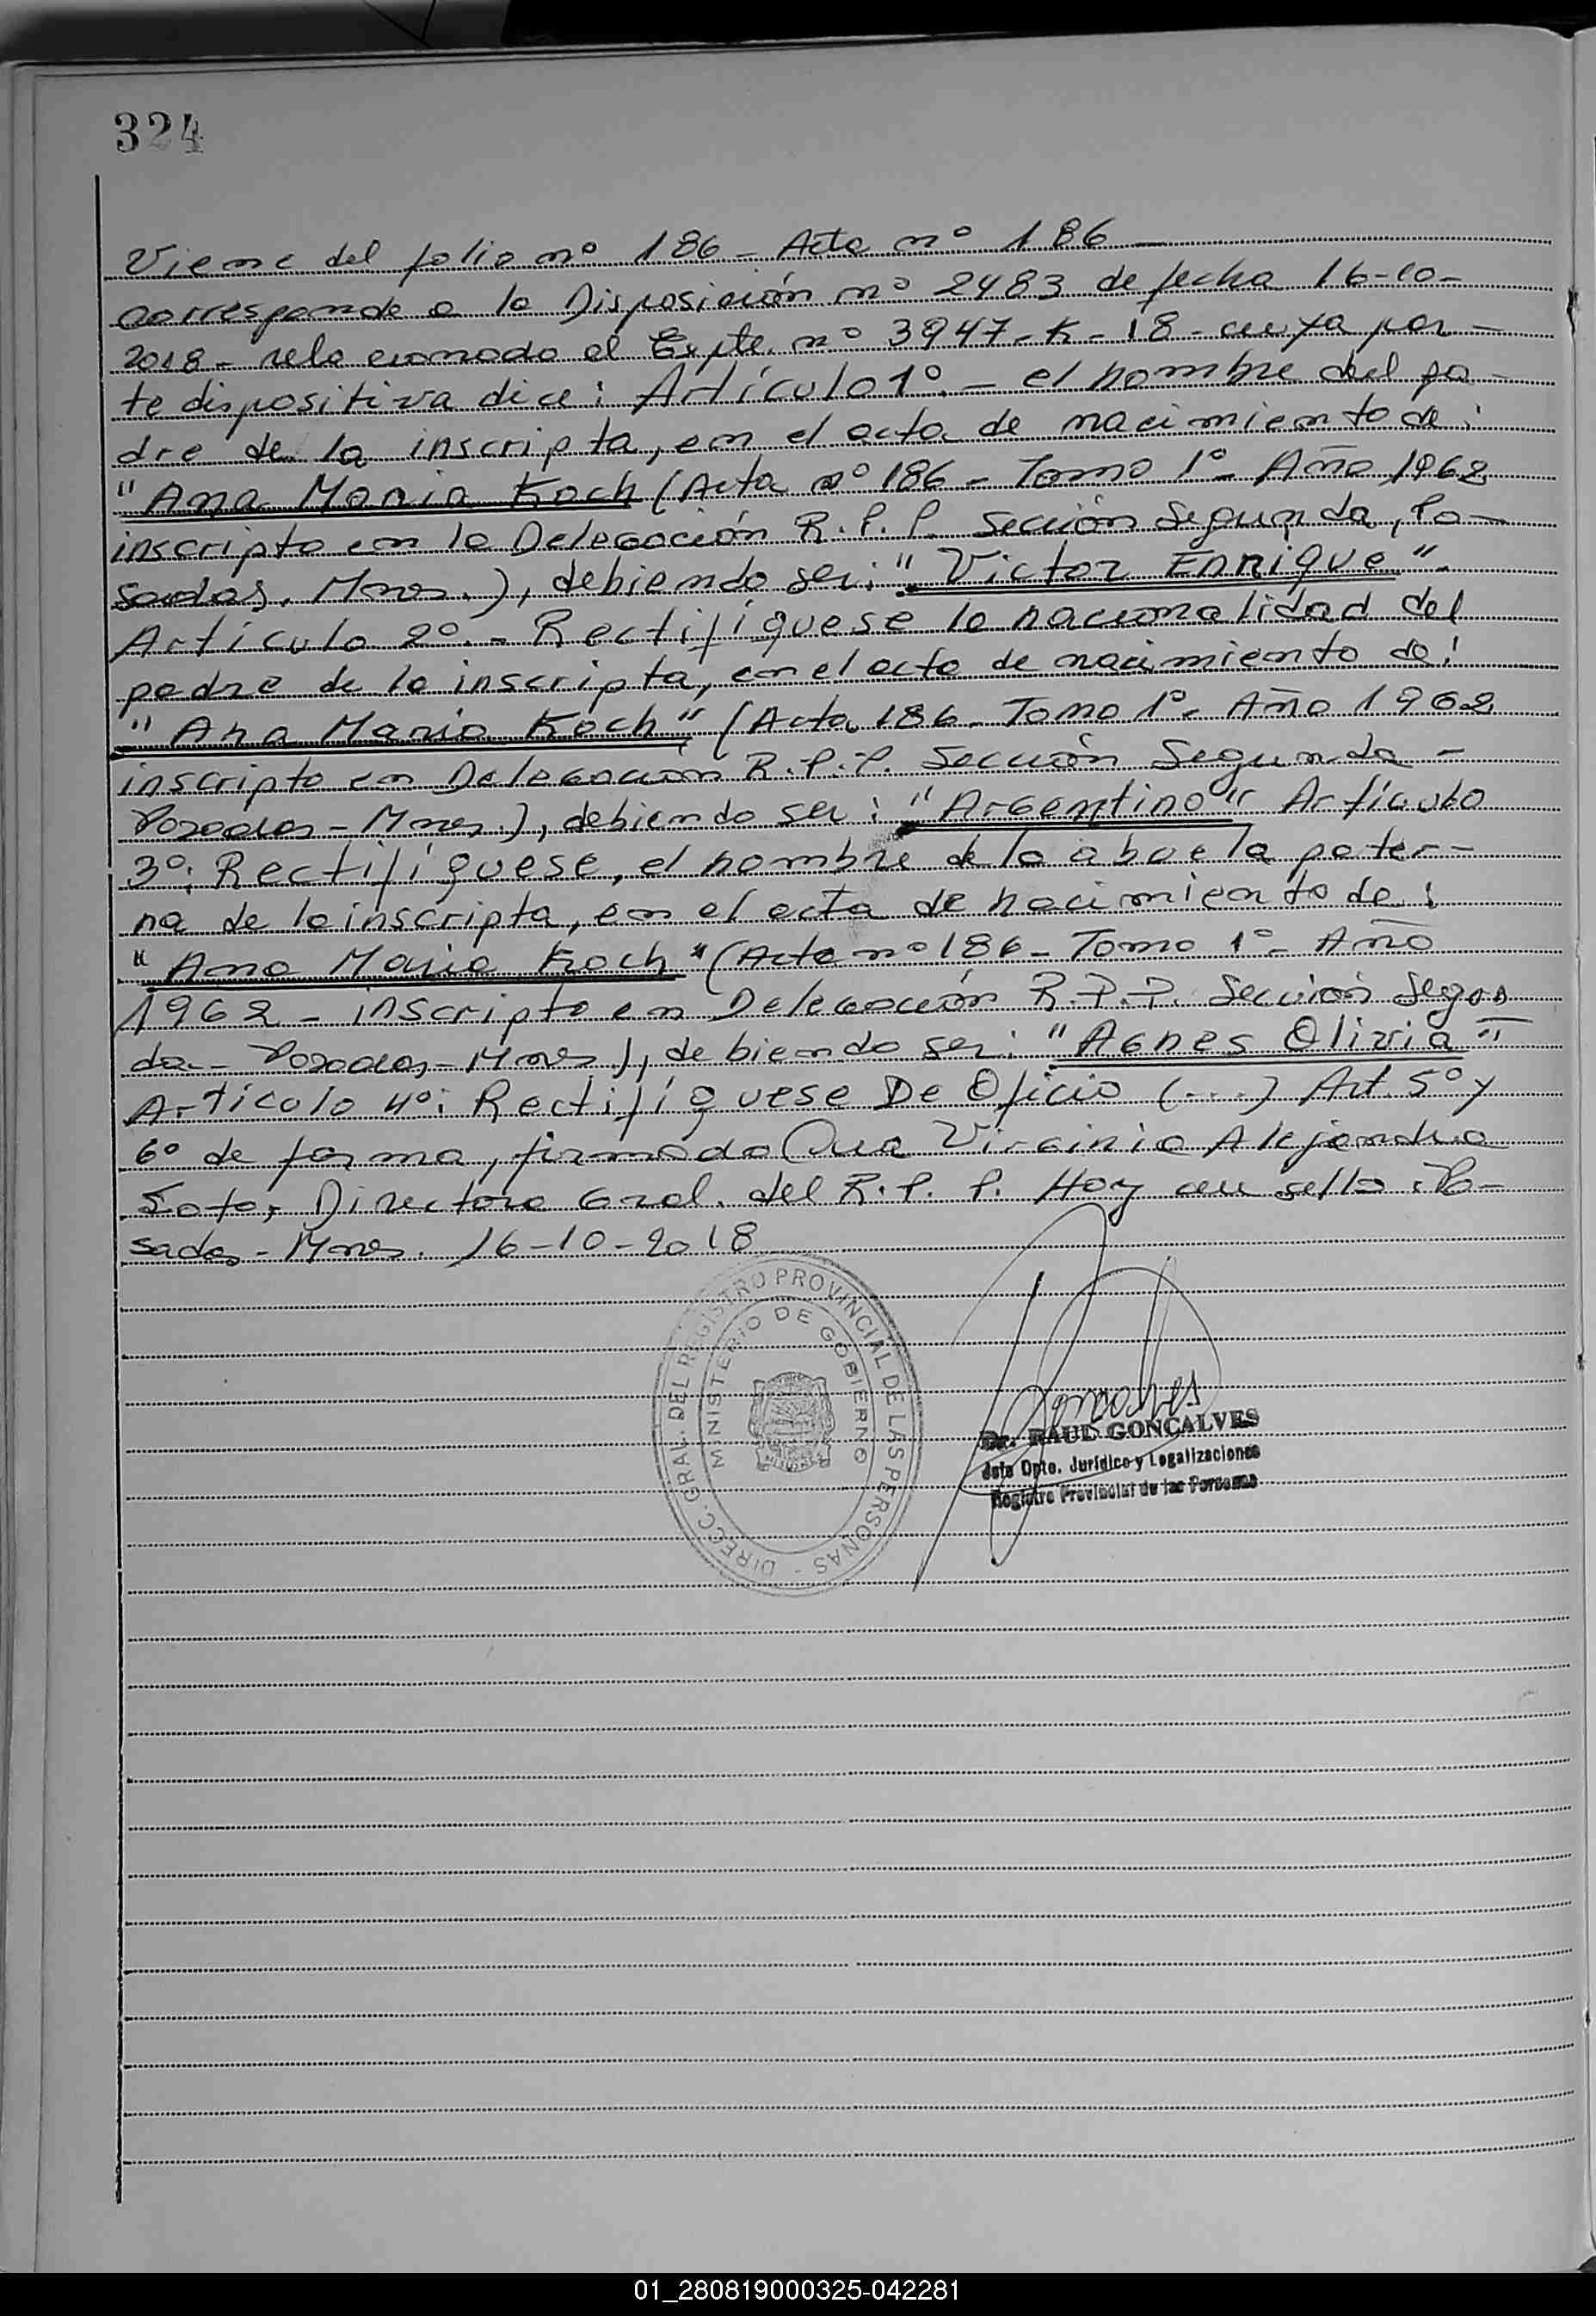 324
Viene del folio nº 186 - Acta nº 186
corresponde a la Disposición nº 2483 de fecha 16-10-
2018 - relacionado al Expte. nº 3947-K-18 - cuya par-
te dispositiva dice: Artículo 1º - el nombre del pa-
dre de la inscripta, en el acta de nacimiento de:
"Ana Maria Koch (Acta nº 186 - Tomo 1º - Año 1962
inscripta en la Delegación R.P.P. Sección Segunda, Po-
sadas, Mnes.), debiendo ser: "Victor Enrique".
Artículo 2º - Rectifíquese la nacionalidad del
padre de la inscripta, en el acta de nacimiento de:
"Ana Maria Koch" (Acta 186 - Tomo 1º - Año 1962
inscripta en Delegación R.P.P. Sección Segunda -
Posadas - Mnes.), debiendo ser: "Argentino" Artículo
3º: Rectifíquese, el nombre de la abuela pater-
na de la inscripta, en el acta de nacimiento de:
"Ana Maria Koch" (Acta nº 186 - Tomo 1º - Año
1962 - inscripta en Delegación R.P.P. Sección Segun
da - Posadas - Mnes), debiendo ser: "Agnes Olivia"
Artículo 4º: Rectifíquese De Oficio (...) Art. 5º y
6º de forma, firmado Virginia Alejandra
Soto, Directora Gral. del R.P.P. Hoy sello. Po-
sadas - Mnes. 16-10-2018
DIRECC. GRAL. DEL REGISTRO PROVINCIAL DE LAS PERSONAS -
MINISTERIO DE GOBIERNO
Goncalves
Dr. RAUL GONÇALVES
Jefe Dpto. Jurídico y Legalizaciones
Registro Provincial de las Personas
01_280819000325-042281